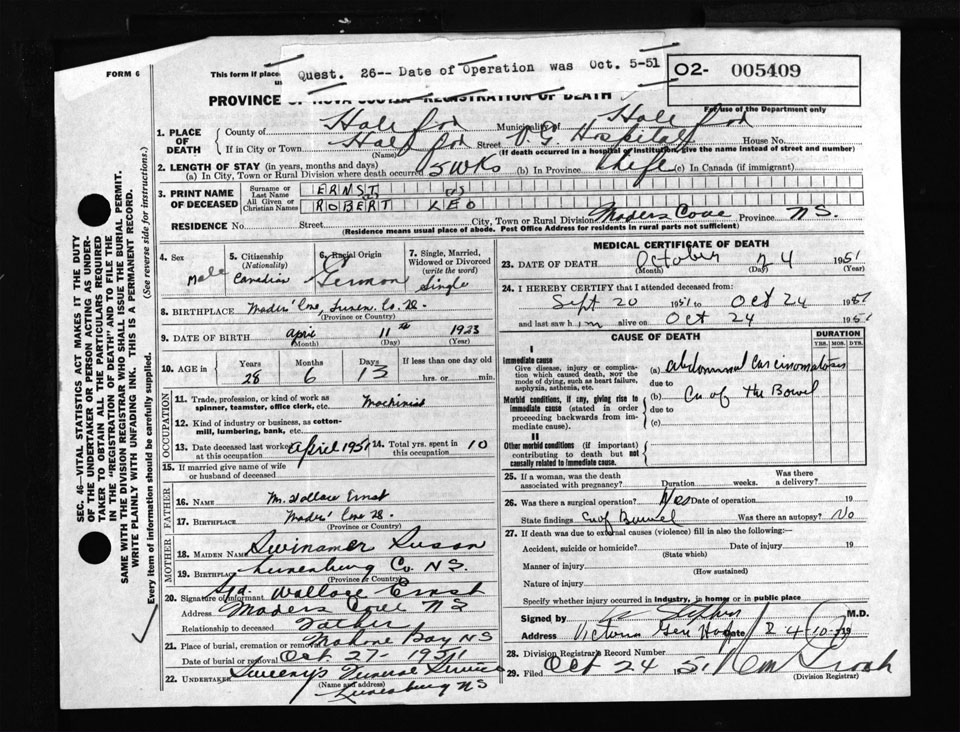 FORM 6
This form if place
Quest. 26-- Date of Operation was Oct. 5-51
02- 005409
For use of the Department only
PROVINCE OF NOVA SCOTIA REGISTRATION OF DEATH
1. PLACE OF DEATH
County of Halifax Municipality of Halifax
If in City or Town Halifax Street V.G. Hospital House No.
(Name) (If death occurred in a hospital or institution, give the name instead of street and number)
2. LENGTH OF STAY (in years, months and days)
(a) In City, Town or Rural Division where death occurred 5 WKS (b) In Province Life (c) In Canada (if immigrant)
3. PRINT NAME OF DECEASED
Surname or Last Name ERNST
All Given or Christian Names ROBERT LEO
RESIDENCE No. Street City, Town or Rural Division Maders Cove Province N S.
(Residence means usual place of abode. Post Office Address for residents in rural parts not sufficient)
4. Sex Male
5. Citizenship (Nationality) Canadian
6. Racial Origin German
7. Single, Married, Widowed or Divorced (write the word) Single
8. BIRTHPLACE Maders' Cove, Lunen. Co. N.S.
(Province or Country)
9. DATE OF BIRTH April 11th 1923
(Month) (Day) (Year)
10. AGE in Years 28 Months 6 Days 13 If less than one day old hrs. or min.
OCCUPATION
11. Trade, profession, or kind of work as spinner, teamster, office clerk, etc. Machinist
12. Kind of industry or business, as cotton-mill, lumbering, bank, etc.
13. Date deceased last worked at this occupation April 1951 14. Total yrs. spent in this occupation 10
15. If married give name of wife or husband of deceased
FATHER
16. NAME M. Wallace Ernst
17. BIRTHPLACE Maders' Cove N.S.
(Province or Country)
MOTHER
18. MAIDEN NAME Swinamer Susan
19. BIRTHPLACE Lunenburg Co. N.S.
(Province or Country)
20. Signature of informant Sgd. Wallace Ernst
Address Maders Cove N S
Relationship to deceased Father
21. Place of burial, cremation or removal Mahone Bay N S
Date of burial or removal Oct. 27- 1951
22. UNDERTAKER Sweeny's Funeral Service
(Name and address) Lunenburg N S
MEDICAL CERTIFICATE OF DEATH
23. DATE OF DEATH October 24 1951
(Month) (Day) (Year)
24. I HEREBY CERTIFY that I attended deceased from:
Sept 20 1951 to Oct 24 1951
and last saw him alive on Oct 24 1951
CAUSE OF DEATH
DURATION
YRS. MOS. DYS.
I
Immediate cause
Give disease, injury or complication which caused death, not the mode of dying, such as heart failure, asphyxia, asthenia, etc.
(a) Abdominal Carcinomatosis
due to
Morbid conditions, if any, giving rise to immediate cause (stated in order proceeding backwards from immediate cause).
(b) Ca of the Bowel
due to
(c)
II
Other morbid conditions (if important) contributing to death but not causally related to immediate cause.
25. If a woman, was the death associated with pregnancy? Duration weeks. Was there a delivery?
26. Was there a surgical operation? Yes Date of operation 19
State findings Ca of Bowel Was there an autopsy? No
27. If death was due to external causes (violence) fill in also the following:—
Accident, suicide or homicide? Date of injury 19
(State which)
Manner of injury
(How sustained)
Nature of injury
Specify whether injury occurred in industry, in home or in public place
Signed by M.D.
Address Victoria Gen Hosp Date
28. Division Registrar's Record Number
29. Filed Oct 24 1951
(Division Registrar)
SEC. 46—VITAL STATISTICS ACT MAKES IT THE DUTY
OF THE UNDERTAKER OR PERSON ACTING AS UNDER-
TAKER TO OBTAIN ALL THE PARTICULARS REQUIRED
IN THE "REGISTRATION OF DEATH" AND TO FILE THE
SAME WITH THE DIVISION REGISTRAR WHO SHALL ISSUE THE BURIAL PERMIT.
WRITE PLAINLY WITH UNFADING INK. THIS IS A PERMANENT RECORD.
Every item of information should be carefully supplied. (See reverse side for instructions.)